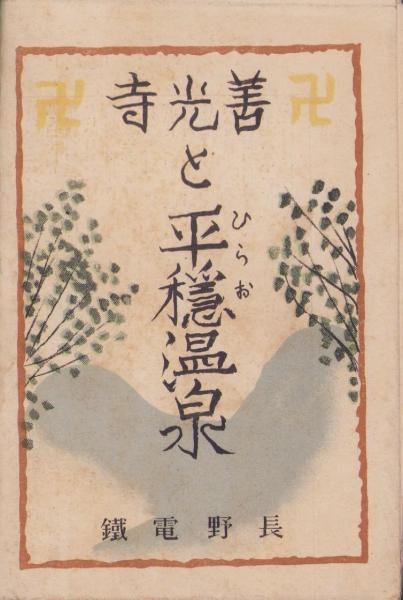 卍 善光寺 卍
と
平穏温泉
ひらお
長野電鐵